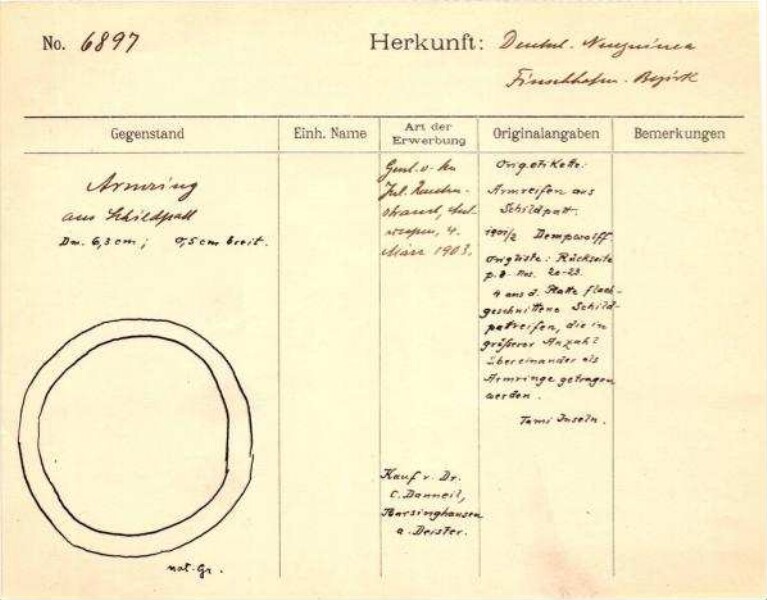 No. 6897
Herkunft: Deutsch. Neuguinea
Finschhafen-Bezirk
Gegenstand
Einh. Name
Art der
Erwerbung
Originalangaben
Bemerkungen
Armring
aus Schildpatt
Dm. 6,3 cm; 0,5 cm breit.
nat. Gr.
Jul.
März 1903.
Kauf v. Dr.
C. Danneil,
Barsinghausen
a. Deister.
Origetikette:
Armreifen aus
Schildpatt.
1901/2 Dempwolff.
Origliste: Rückseite
p. 8 Nos. 20-23.
4 aus d. Platte flach-
geschnittene Schild-
patreifen, die in
größerer Anzahl
übereinander als
Armringe getragen
werden.
Tami Inseln.